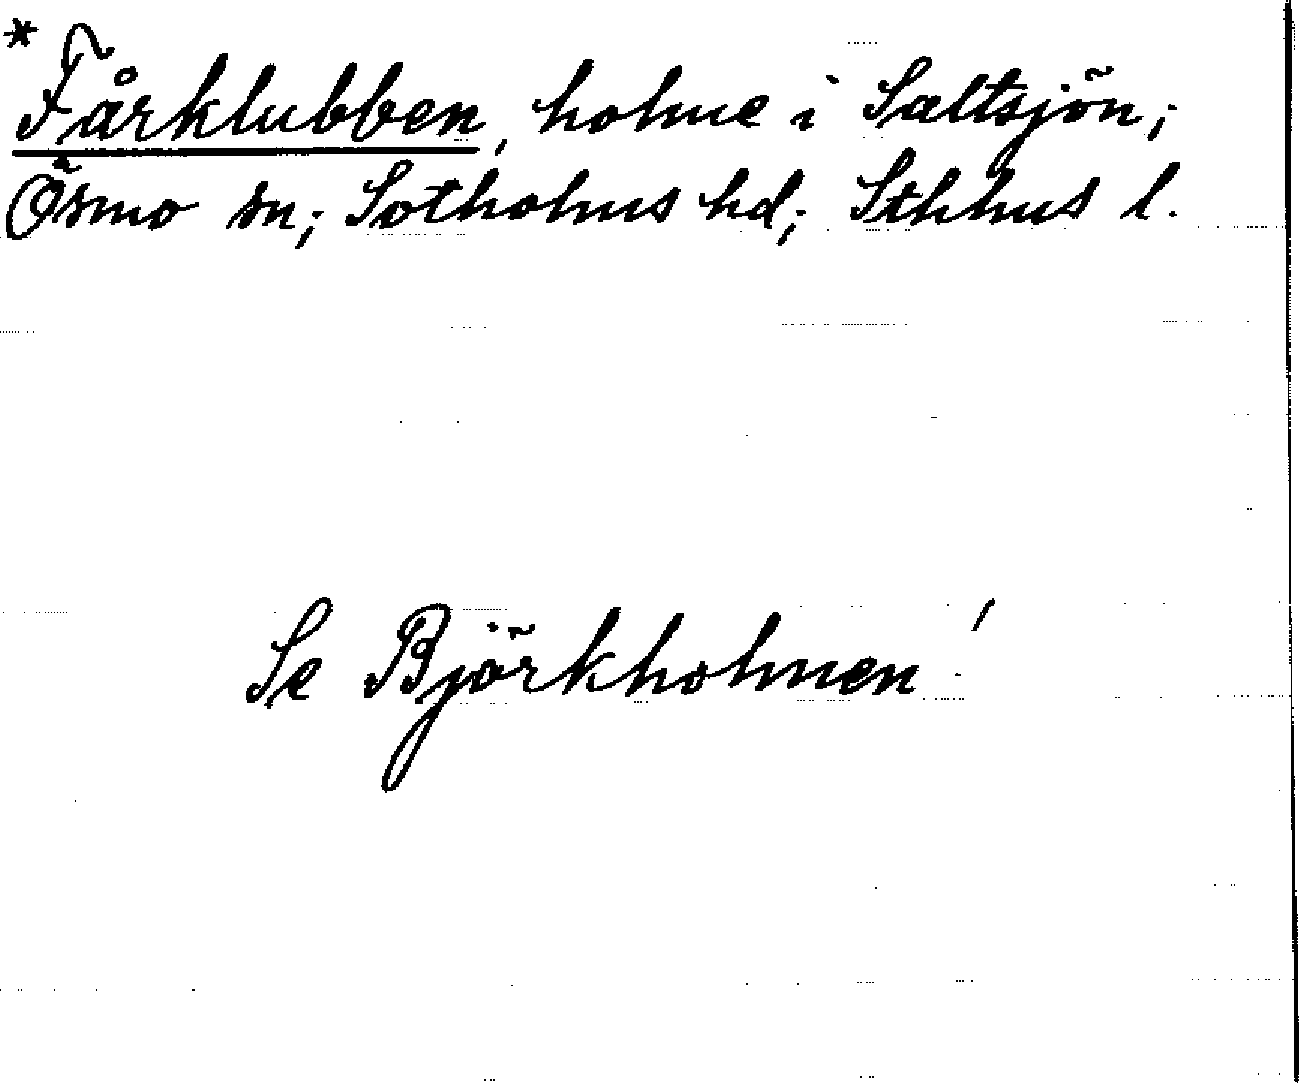 * Fårklubben, holme i Saltsjön;
Ösmo sn; Sotholms hd; Sthlms l.
Se Björkholmen!